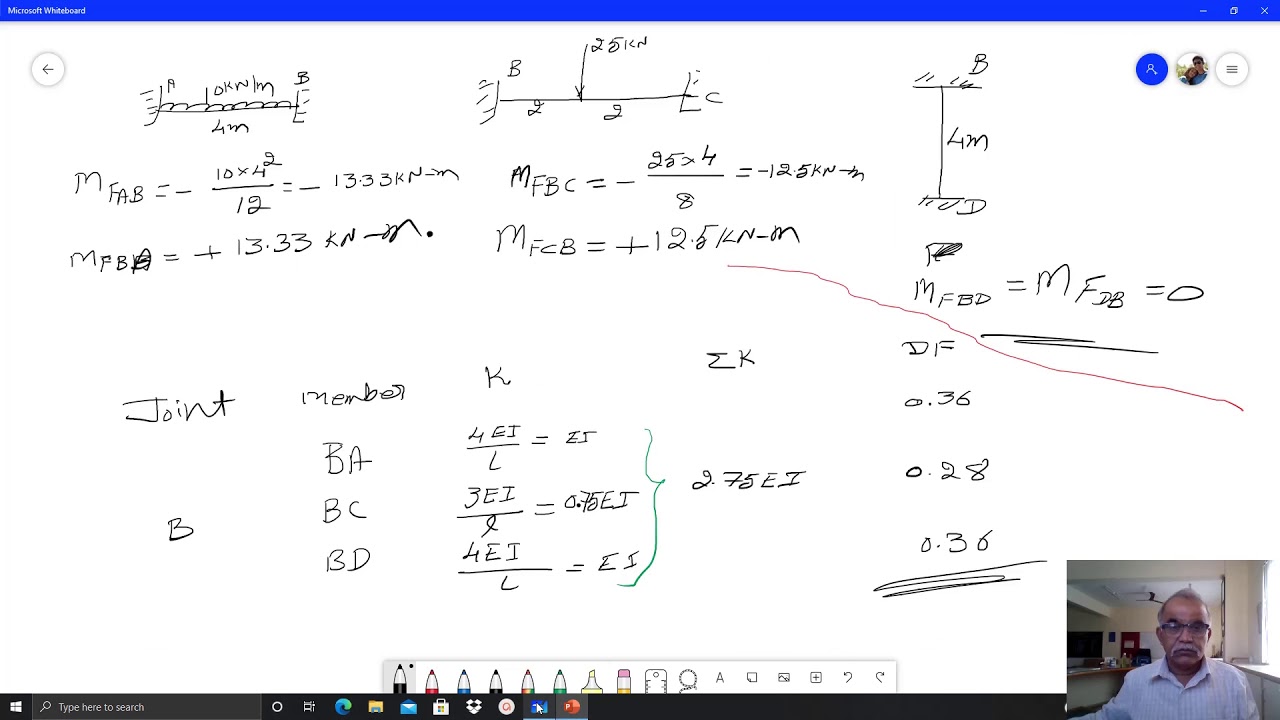 Microsoft Whiteboard
A 10KN/m B
4m
25KN
B C
2 2
B
4m
D
MFAB = - 10×4²/12 = - 13.33KN-m
MFBA = + 13.33 KN-m.
MFBC = - 25×4/8 = -12.5KN-m
MFCB = +12.5KN-m
MFBD = MFDB = 0
Joint member K ΣK DF
BA 4EI/L = EI 0.36
B BC 3EI/l = 0.75EI 2.75EI 0.28
BD 4EI/L = EI 0.36
A
Type here to search